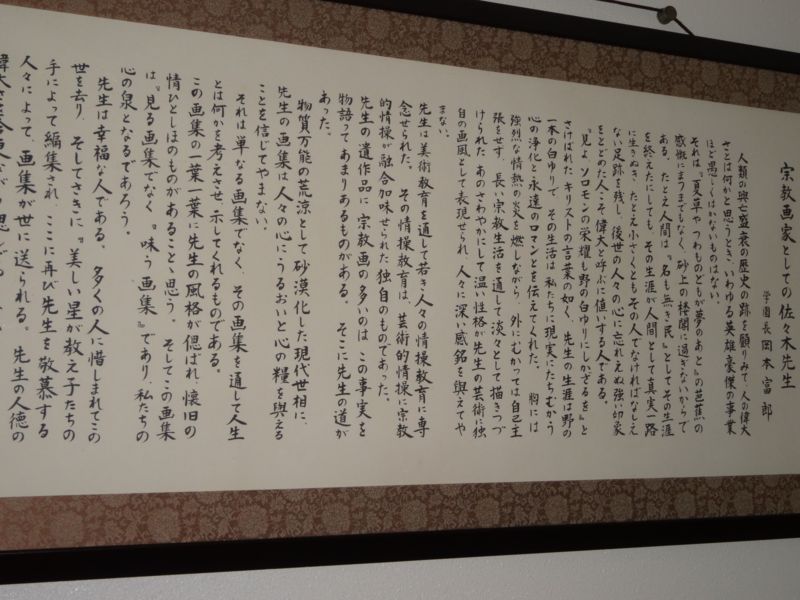 宗教画家としての佐々木先生
学園長 岡本富郎
人類の興亡盛衰の歴史の跡を顧りみて、人の偉大
さとは何かと思うとき、いわゆる英雄豪傑の事業
ほど愚しくはかないものはない。
それは『夏草やつわものどもが夢のあと』の芭蕉の
感慨にまつまでもなく、砂上の楼閣に過ぎないからで
ある。たとえ人間は『名も無き民』としてその生涯
を終えたにしても、その生涯が人間として真実一路
に生きぬき、たとえ小さくともその人でなければなしえ
ない足跡を残し、後世の人々の心に忘れえぬ強い印象
をとどめた人こそ偉大と呼ぶに値いする人である。
『見よ、ソロモンの栄耀も野の白ゆりにしかざるを』と
さけばれたキリストの言葉の如く、先生の生涯は野の
一本の白ゆりで、その生活は私たちに現実にたちむかう
心の浄化と永遠のロマンとを伝えてくれた。胸には
強烈な情熱の火を燃しながら、外にむかっては自己主
張をせず、長い宗教生活を通して淡々として描きつづ
けられたあのさわやかにして温い性格が先生の芸術に独
自の画風として表現せられ、人々に深い感銘を与えてや
まない。
先生は美術教育を通して若き人々の情操教育に専
念せられた。その情操教育は、芸術的情操に宗教
的情操が融合加味せられた独自のものであった。
先生の遺作品に宗教画の多いのは、この事実を
物語ってあまりあるものがある。そこに先生の道が
あった。
物質万能の荒涼として砂漠化した現代世相に、
先生の画集は人々の心にうるおいと心の糧を与える
ことを信じてやまない。
それは単なる画集でなく、その画集を通して人生
とは何かを考えさせ、示してくれるものである。
この画集の一葉一葉に先生の風格が偲ばれ、懐旧の
情ひとしほのものがあることゝ思う。そしてこの画集
は『見る画集でなく、『味う画集』であり、私たちの
心の泉となるであろう。
先生は幸福な人である。多くの人に惜しまれてこの
世を去り、そしてさきに『美しい星が教え子たちの
手によって編集され、ここに再び先生を敬慕する
人々によって、画集が世に送られる。先生の人徳の